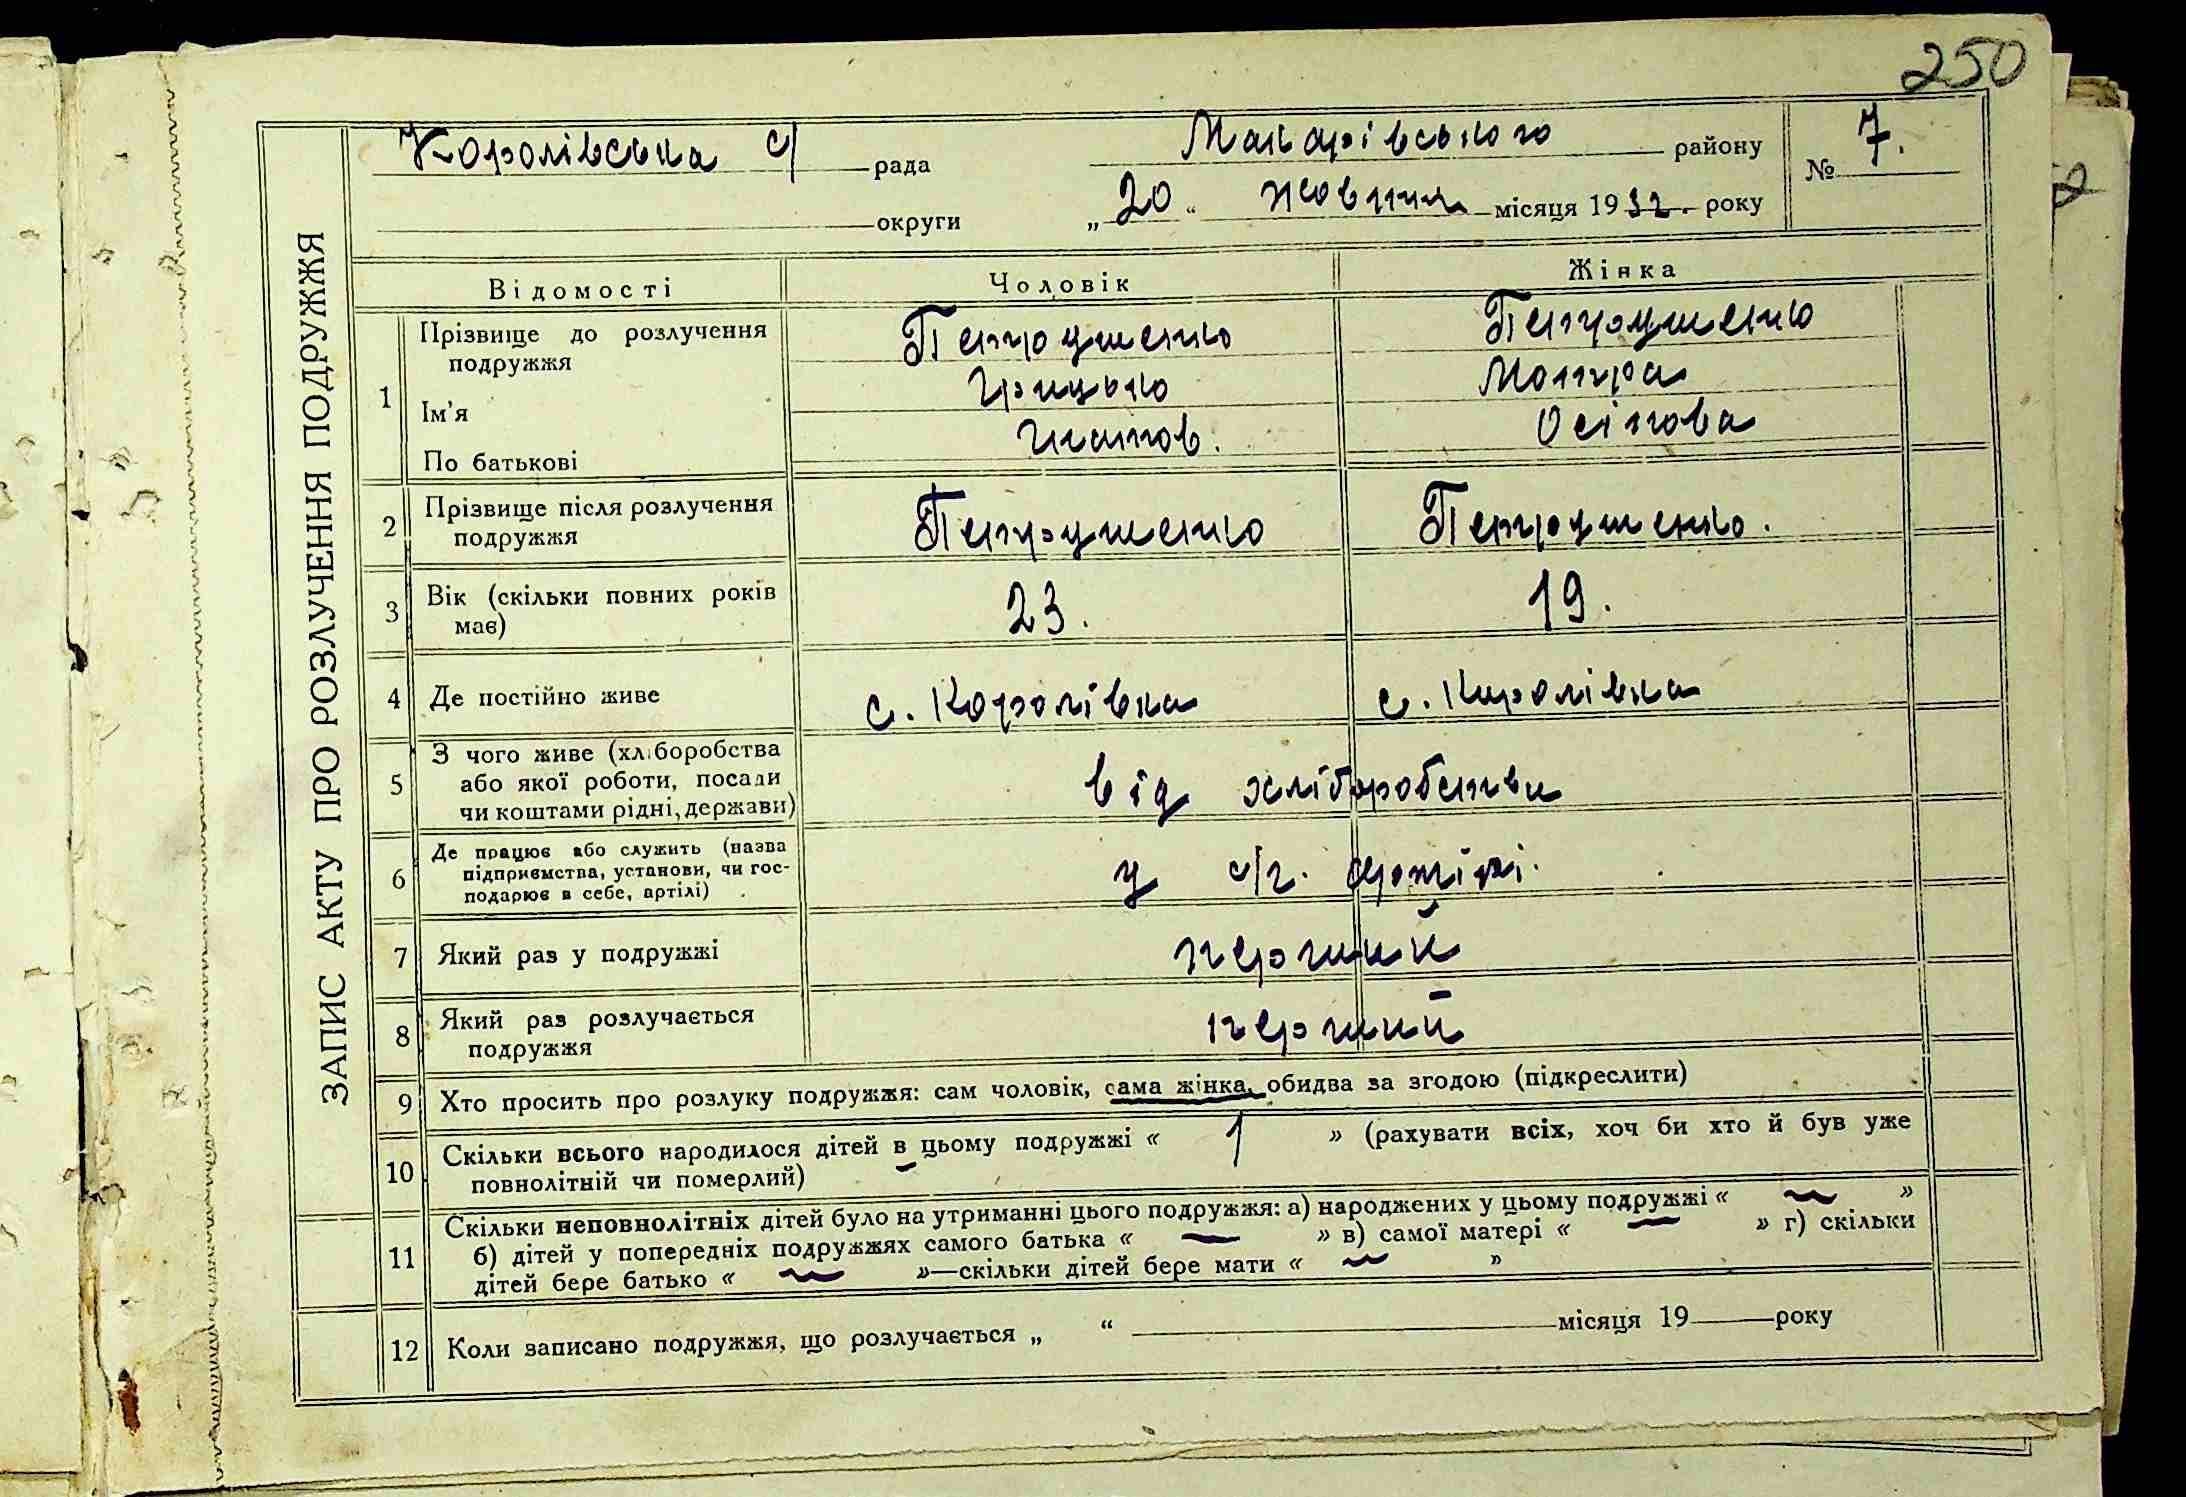 250
Королівська с/ рада Макарівського району № 7.
округи „20“ жовтня місяця 1932. року
ЗАПИС АКТУ ПРО РОЗЛУЧЕННЯ ПОДРУЖЖЯ
Відомості Чоловік Жінка
1 Прізвище до розлучення Петрушенко Петрушенко
подружжя
Ім'я Грицько Мотря
По батькові Гнатов. Осіпова
2 Прізвище після розлучення Петрушенко Петрушенко.
подружжя
3 Вік (скільки повних років 23. 19.
має)
4 Де постійно живе с. Королівка с. Королівка
5 З чого живе (хліборобства
або якої роботи, посади від хліборобства
чи коштами рідні, держави)
6 Де працює або служить (назва
підприємства, установи, чи гос- у с/г. артілі.
подарює в себе, артілі)
7 Який раз у подружжі перший
8 Який раз розлучається перший
подружжя
9 Хто просить про розлуку подружжя: сам чоловік, сама жінка, обидва за згодою (підкреслити)
10 Скільки всього народилося дітей в цьому подружжі « 1 » (рахувати всіх, хоч би хто й був уже
повнолітній чи померлий)
11 Скільки неповнолітніх дітей було на утриманні цього подружжя: а) народжених у цьому подружжі « — »
б) дітей у попередніх подружжях самого батька « — » в) самої матері « — » г) скільки
дітей бере батько « — »—скільки дітей бере мати « — »
12 Коли записано подружжя, що розлучається „ “ місяця 19 року